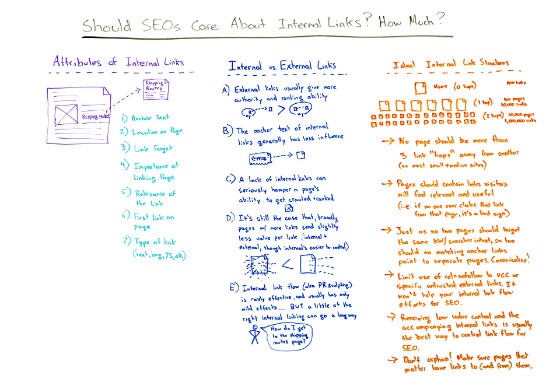 Should SEOs Care About Internal Links? How Much?
Attributes of Internal Links
Shipping
Routes
Shipping routes
1) Anchor Text
2) Location on Page
3) Link Target
4) Importance of
Linking Page
5) Relevance of
the Link
6) First link on
page
7) Type of link
(text, img, JS, etc)
Internal vs External Links
A) External links usually give more
authority and ranking ability
B) The anchor text of internal
links generally has less influence
C) A lack of internal links can
seriously hamper a page's
ability to get crawled + ranked
D) It's still the case that, broadly,
pages w/ more links send slightly
less value per link (internal +
external, though internal's easier to control)
E) Internal link flow (aka PR sculpting)
is rarely effective, and usually has only
mild effects... BUT a little of the
right internal linking can go a long way
How do I get
to the shipping
routes page?
Ideal Internal Link Structures
Home (0 hops)
(1 hop)
(2 hops)
→ No page should be more
than 3 link "hops" away from another
(on most small-medium sites)
→ Pages should contain links visitors
will find relevant and useful
(i.e. if no one ever clicks that link
from that page, it's a bad sign)
→ Just as no two pages should target
the same KW/searcher intent, so too
should no matching anchor links
point to separate pages. Canonicalize!
→ Limit use of rel=nofollow to UGC or
specific untrusted external links. It
won't help your internal link flow
efforts for SEO.
→ Removing low value content and the
accompanying internal links is usually
the best way to control link flow for
SEO.
→ Don't orphan! Make sure pages that
matter have links to (and from) them.